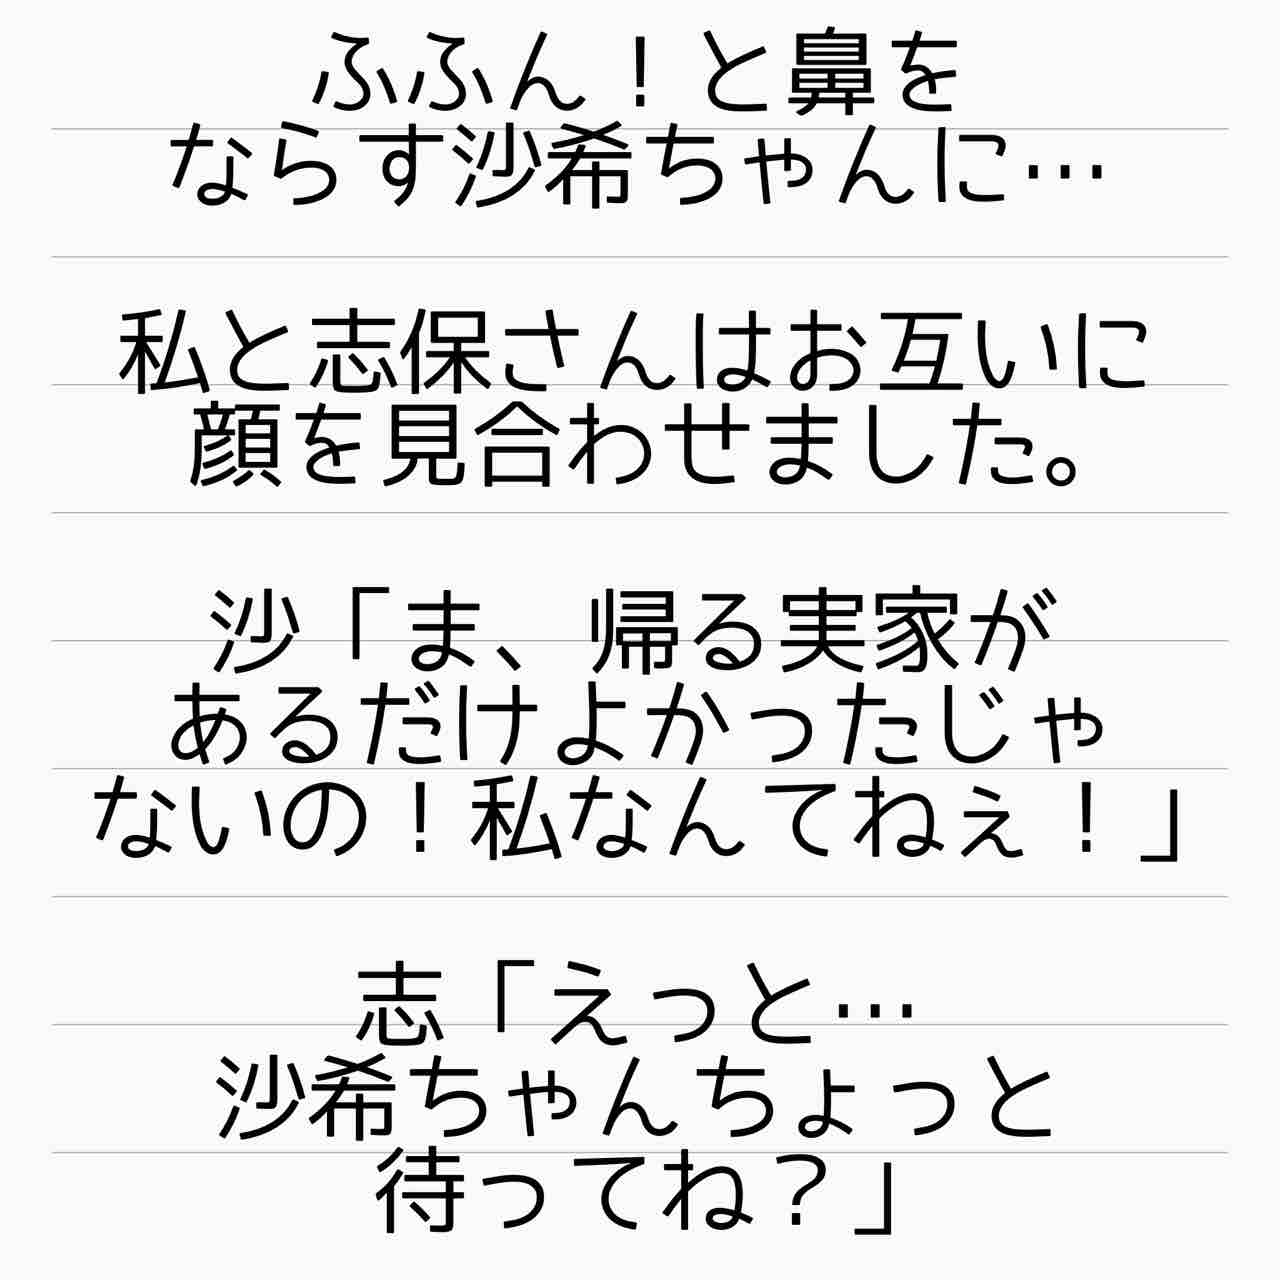 ふふん！と鼻を
ならす沙希ちゃんに…
私と志保さんはお互いに
顔を見合わせました。
沙「ま、帰る実家が
あるだけよかったじゃ
ないの！私なんてねぇ！」
志「えっと…
沙希ちゃんちょっと
待ってね？」